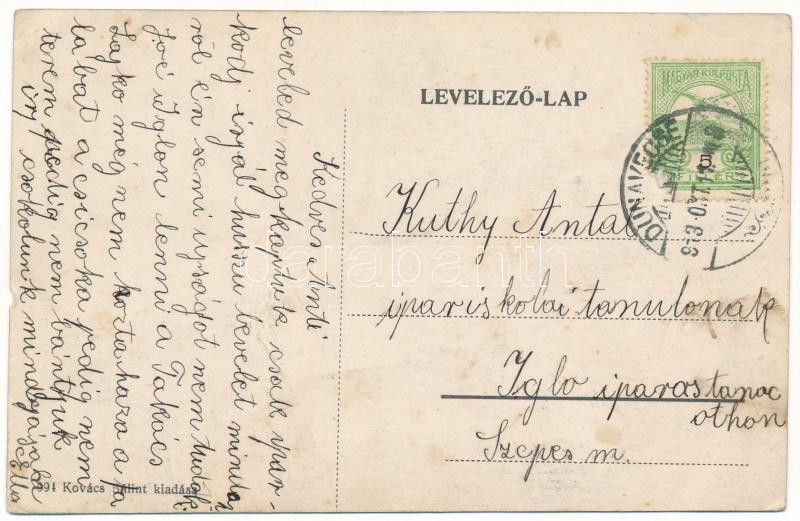 LEVELEZŐ-LAP
MAGYAR KIR. POSTA
5
FILLÉR
DUNAVECSE
Kuthy Antal
ipariskolai tanulonak
Iglo iparostanoc
othon
Szepes m.
Kedves Anti
leveled megkaptuk csak ipar-
kodj irjál huszu levelet minda
ról én semi ujságot nem tudok
Joé Iglon lenni a Takács
Lajko még nem hozta haza a fa
lábat a csicsoka pedig nem
terem pedig nem bántjuk
irj csokolunk mindnyájan
Ella
991 Kovács Bálint kiadása
darabanth